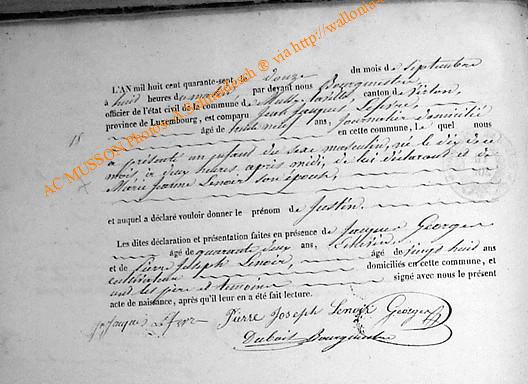 L'AN mil huit cent quarante-sept, le douze du mois de Septembre
à huit heures du matin par devant nous Bourguinstre,
officier de l'état civil de la commune de Mussy-la-ville canton de Virton,
province de Luxembourg, est comparu Jean Jacques Lefèvre,
âgé de trente neuf ans, journalier domicilié
en cette commune, le quel nous
a présenté un enfant du sexe masculin, né le dix de ce
mois, à deux heures après midi, de lui déclarant et de
Marie Jeanne Lenoir son épouse,
et auquel a déclaré vouloir donner le prénom de Justin.
Les dites déclaration et présentation faites en présence de Jacques Georges
âgé de quarante deux ans,
et de Pierre Joseph Lenoir, âgé de vingt huit ans
cultivateur domiciliés en cette commune, et
ont les père et témoins signé avec nous le présent
acte de naissance, après qu'il leur en a été fait lecture.
Pierre Joseph Lenoir Georges
AC MUSSON Photos ® via http://